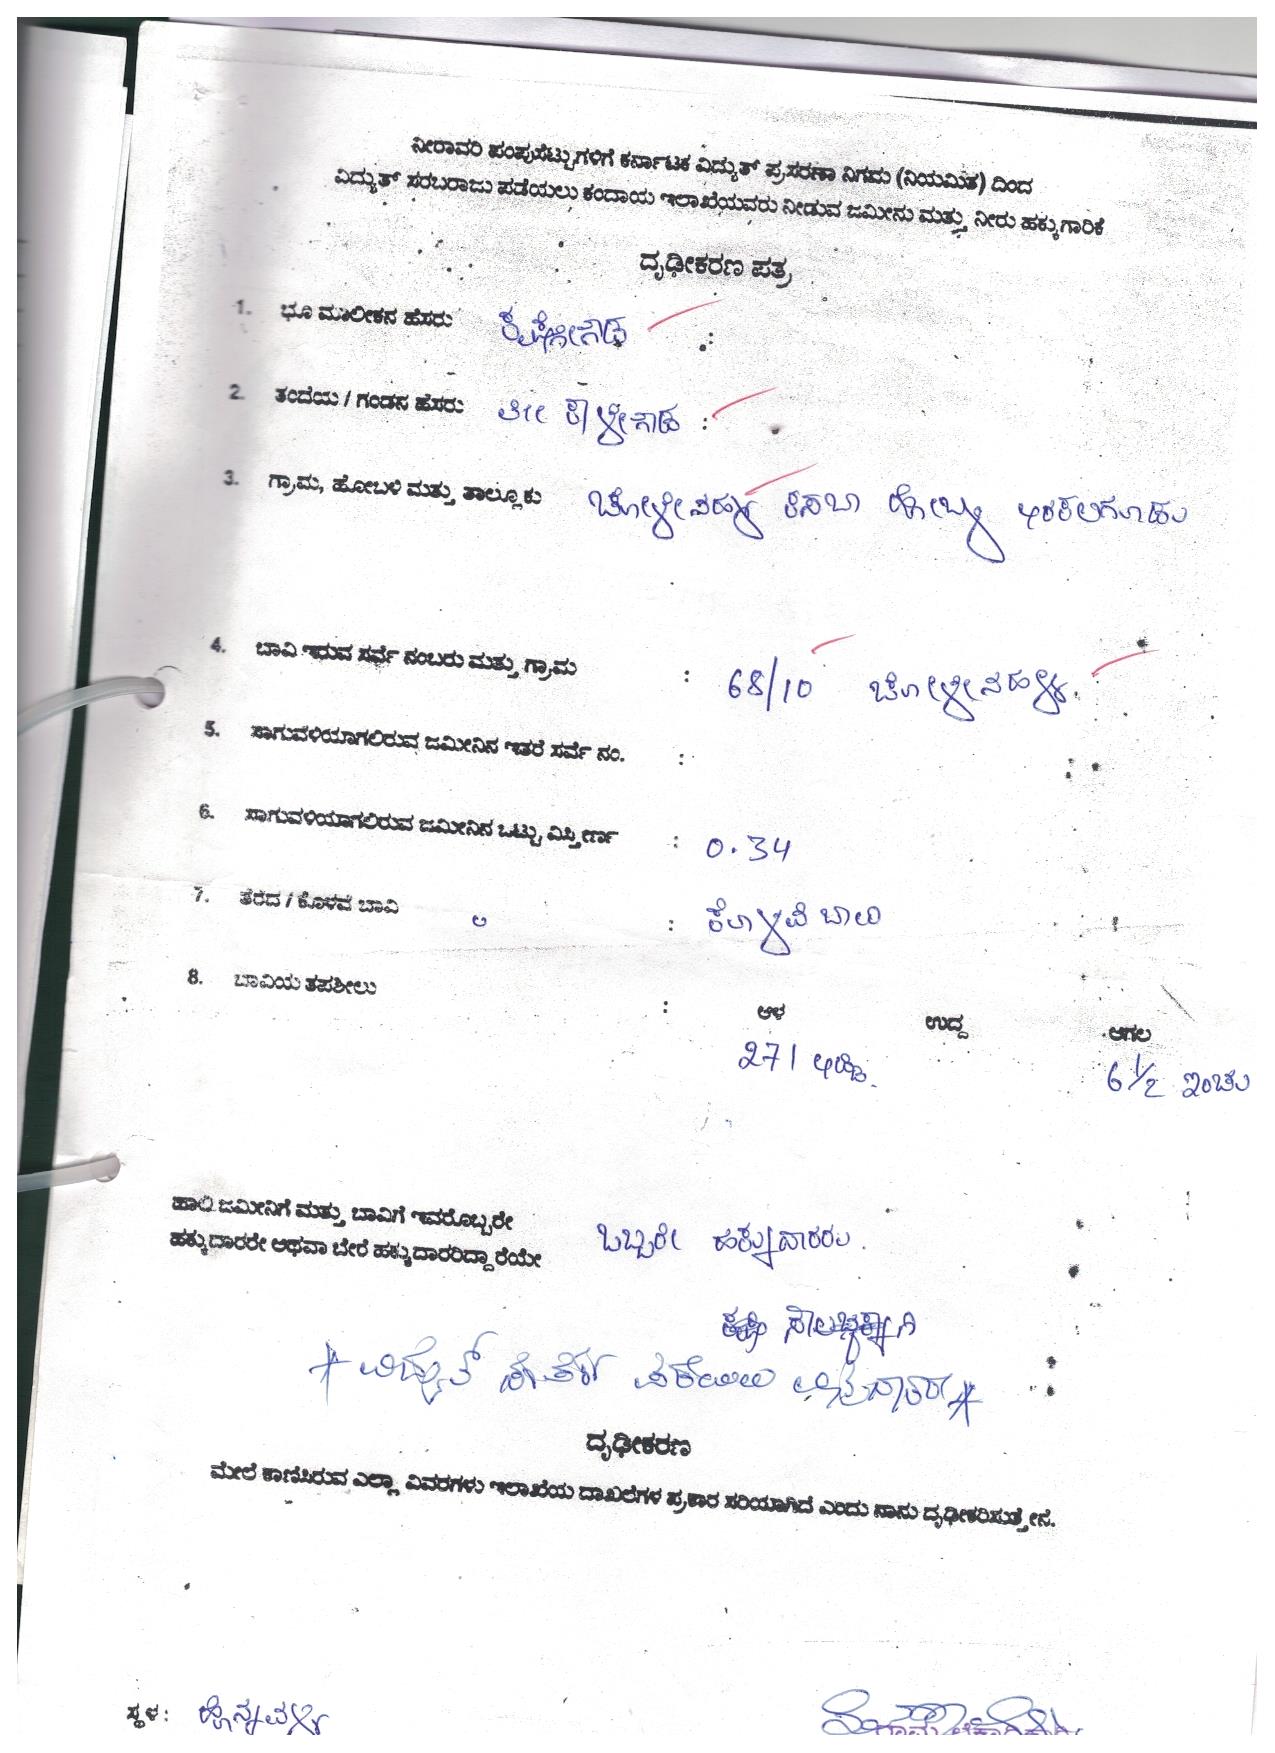 ನೀರಾವರಿ ಪಂಪುಸೆಟ್ಟುಗಳಿಗೆ ಕರ್ನಾಟಕ ವಿದ್ಯುತ್ ಪ್ರಸರಣಾ ನಿಗಮ (ನಿಯಮಿತ) ದಿಂದ
ವಿದ್ಯುತ್ ಸರಬರಾಜು ಪಡೆಯಲು ಕಂದಾಯ ಇಲಾಖೆಯವರು ನೀಡುವ ಜಮೀನು ಮತ್ತು ನೀರು ಹಕ್ಕುಗಾರಿಕೆ
ದೃಢೀಕರಣ ಪತ್ರ
1. ಭೂ ಮಾಲೀಕನ ಹೆಸರು :
2. ತಂದೆಯ / ಗಂಡನ ಹೆಸರು ಕಾಳೇಗೌಡ :
3. ಗ್ರಾಮ, ಹೋಬಳಿ ಮತ್ತು ತಾಲ್ಲೂಕು ಕಸಬಾ ಹೋಬಳಿ ಅರಕಲಗೂಡು
4. ಬಾವಿ ಇರುವ ಸರ್ವೆ ನಂಬರು ಮತ್ತು ಗ್ರಾಮ : 68/10
5. ಸಾಗುವಳಿಯಾಗಲಿರುವ ಜಮೀನಿನ ಇತರೆ ಸರ್ವೆ ನಂ. :
6. ಸಾಗುವಳಿಯಾಗಲಿರುವ ಜಮೀನಿನ ಒಟ್ಟು ವಿಸ್ತೀರ್ಣ : 0.34
7. ತೆರೆದ / ಕೊಳವೆ ಬಾವಿ : ಕೊಳವೆ ಬಾವಿ
8. ಬಾವಿಯ ತಪಶೀಲು : ಆಳ ಉದ್ದ ಅಗಲ
271 ಅಡಿ. 6 1/2 ಇಂಚು
ಹಾಲಿ ಜಮೀನಿಗೆ ಮತ್ತು ಬಾವಿಗೆ ಇವರೊಬ್ಬರೇ
ಹಕ್ಕುದಾರರೇ ಅಥವಾ ಬೇರೆ ಹಕ್ಕುದಾರರಿದ್ದಾರೆಯೇ ಒಬ್ಬರೇ ಹಕ್ಕುದಾರರು.
* ವಿದ್ಯುತ್ *
ದೃಢೀಕರಣ
ಮೇಲೆ ಕಾಣಿಸಿರುವ ಎಲ್ಲಾ ವಿವರಗಳು ಇಲಾಖೆಯ ದಾಖಲೆಗಳ ಪ್ರಕಾರ ಸರಿಯಾಗಿದೆ ಎಂದು ನಾನು ದೃಢೀಕರಿಸುತ್ತೇನೆ.
ಸ್ಥಳ :